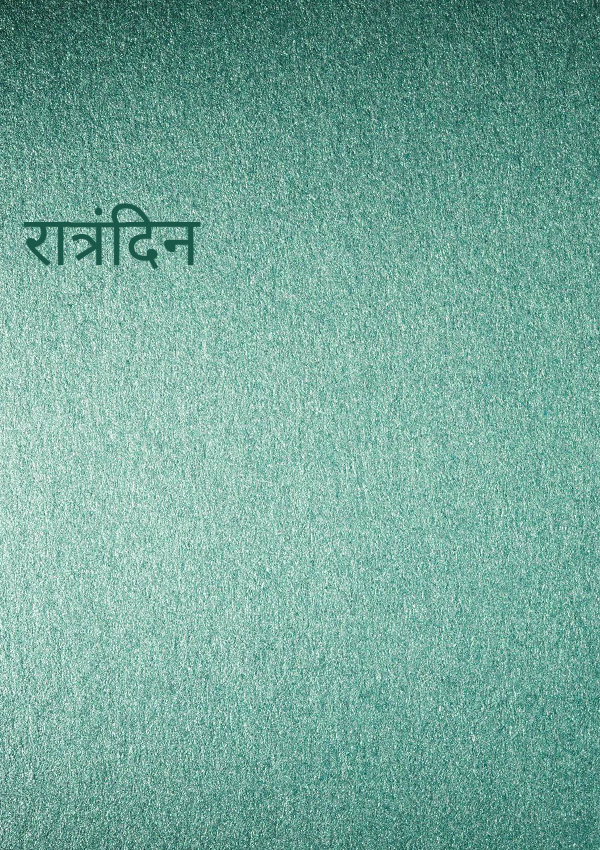 रात्रंदिन